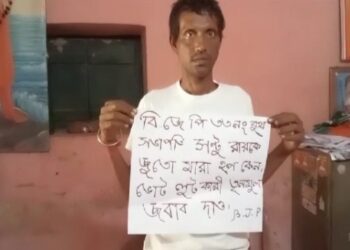 বি জে পি ৩৩নং বুথ
সভাপতি সন্টু রায়কে
জুতো মারা হল কেন,
ভোট লুটকারী তৃনমূল
জবাব দাও।
B.J.P